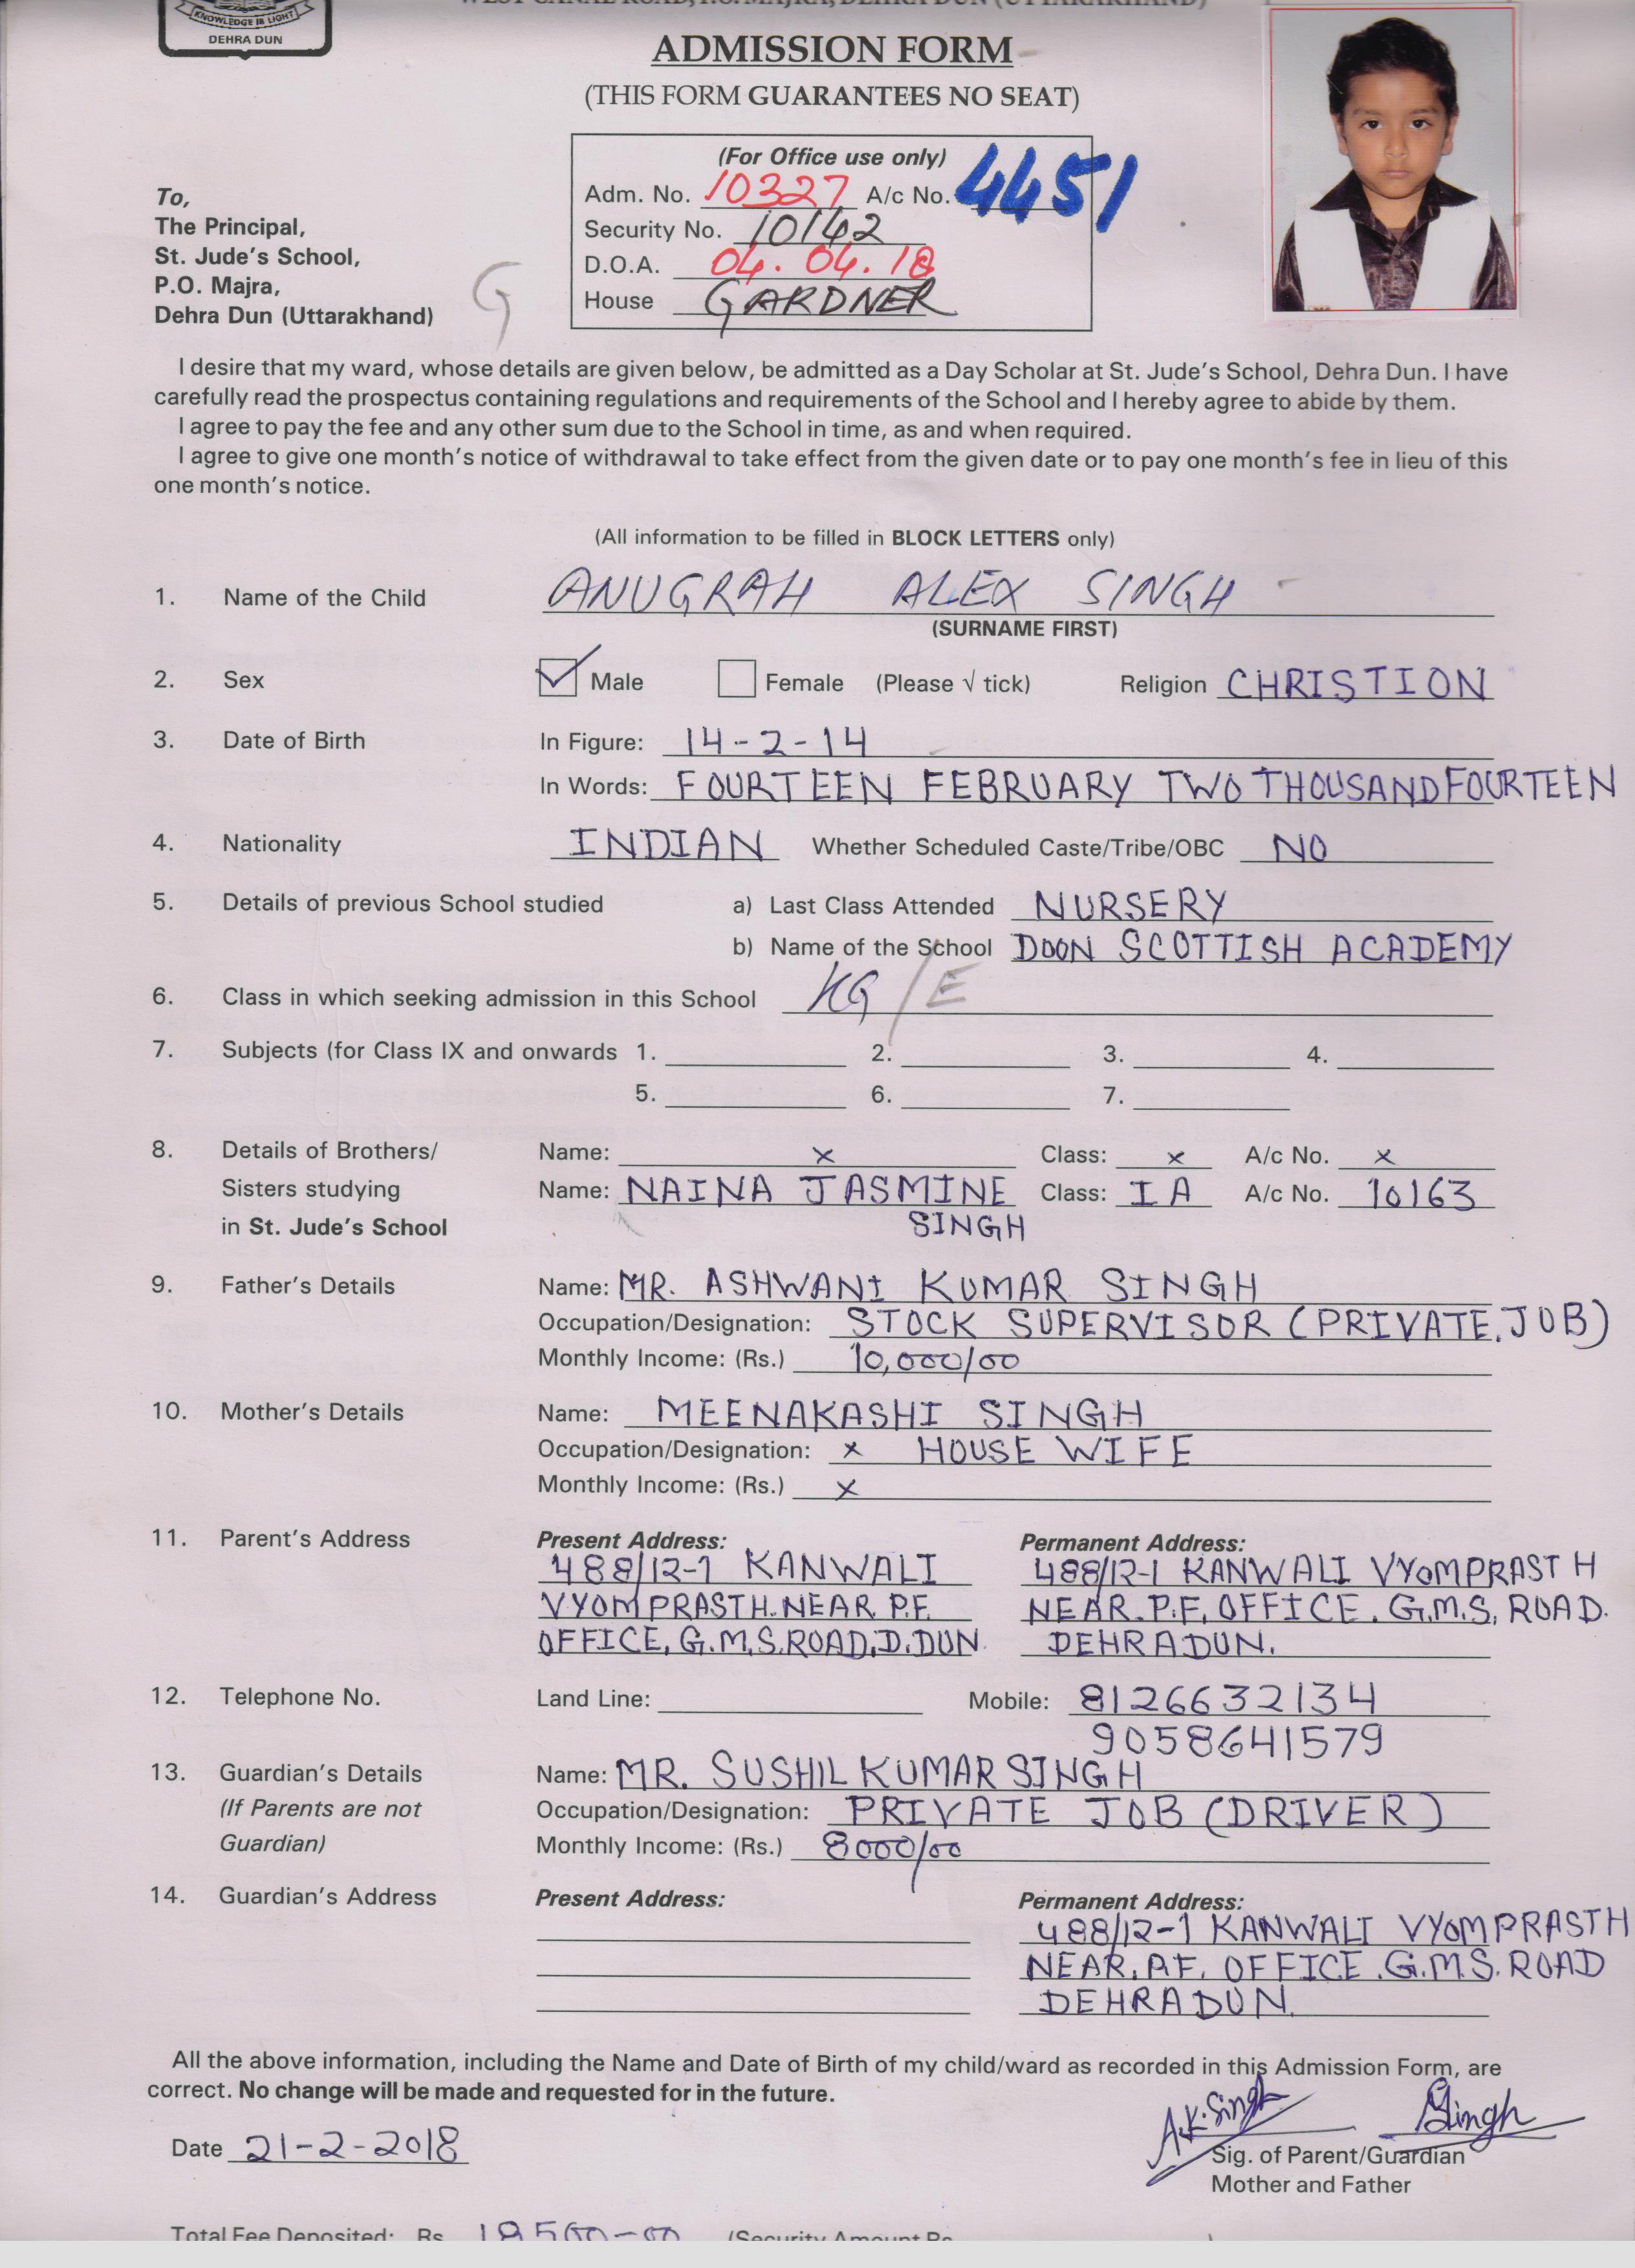 KNOWLEDGE IS LIGHT
DEHRA DUN
WEST CANAL ROAD, P.O. MAJRA, DEHRA DUN (UTTARAKHAND)
ADMISSION FORM
(THIS FORM GUARANTEES NO SEAT)
(For Office use only)
Adm. No. 10327 A/c No. 4451
Security No. 10142
D.O.A. 04.04.18
House GARDNER
To,
The Principal,
St. Jude's School,
P.O. Majra,
Dehra Dun (Uttarakhand)
G
I desire that my ward, whose details are given below, be admitted as a Day Scholar at St. Jude's School, Dehra Dun. I have
carefully read the prospectus containing regulations and requirements of the School and I hereby agree to abide by them.
I agree to pay the fee and any other sum due to the School in time, as and when required.
I agree to give one month's notice of withdrawal to take effect from the given date or to pay one month's fee in lieu of this
one month's notice.
(All information to be filled in BLOCK LETTERS only)
1. Name of the Child ANUGRAH ALEX SINGH
(SURNAME FIRST)
2. Sex Male Female (Please √ tick) Religion CHRISTION
3. Date of Birth In Figure: 14-2-14
In Words: FOURTEEN FEBRUARY TWO THOUSAND FOURTEEN
4. Nationality INDIAN Whether Scheduled Caste/Tribe/OBC NO
5. Details of previous School studied a) Last Class Attended NURSERY
b) Name of the School DOON SCOTTISH ACADEMY
6. Class in which seeking admission in this School KG/E
7. Subjects (for Class IX and onwards 1. 2. 3. 4.
5. 6. 7.
8. Details of Brothers/ Name: x Class: x A/c No. x
Sisters studying Name: NAINA JASMINE Class: I A A/c No. 10163
in St. Jude's School SINGH
9. Father's Details Name: MR. ASHWANI KUMAR SINGH
Occupation/Designation: STOCK SUPERVISOR (PRIVATE.JOB)
Monthly Income: (Rs.) 10,000/00
10. Mother's Details Name: MEENAKASHI SINGH
Occupation/Designation: x HOUSE WIFE
Monthly Income: (Rs.) x
11. Parent's Address Present Address: Permanent Address:
488/12-1 KANWALI 488/12-1 KANWALI VYOMPRASTH
VYOMPRASTH.NEAR P.F. NEAR.P.F, OFFICE. G.M.S, ROAD.
OFFICE, G.M.S.ROAD,D.DUN. DEHRADUN.
12. Telephone No. Land Line: Mobile: 8126632134
9058641579
13. Guardian's Details Name: MR. SUSHIL KUMAR SINGH
(If Parents are not Occupation/Designation: PRIVATE JOB (DRIVER)
Guardian) Monthly Income: (Rs.) 8000/00
14. Guardian's Address Present Address: Permanent Address:
488/12-1 KANWALI VYOMPRASTH
NEAR.P.F. OFFICE.G.M.S. ROAD
DEHRADUN.
All the above information, including the Name and Date of Birth of my child/ward as recorded in this Admission Form, are
correct. No change will be made and requested for in the future.
A.K.Singh Singh
Date 21-2-2018
Sig. of Parent/Guardian
Mother and Father
Total Fee Deposited: Rs. (Security Amount Rs.